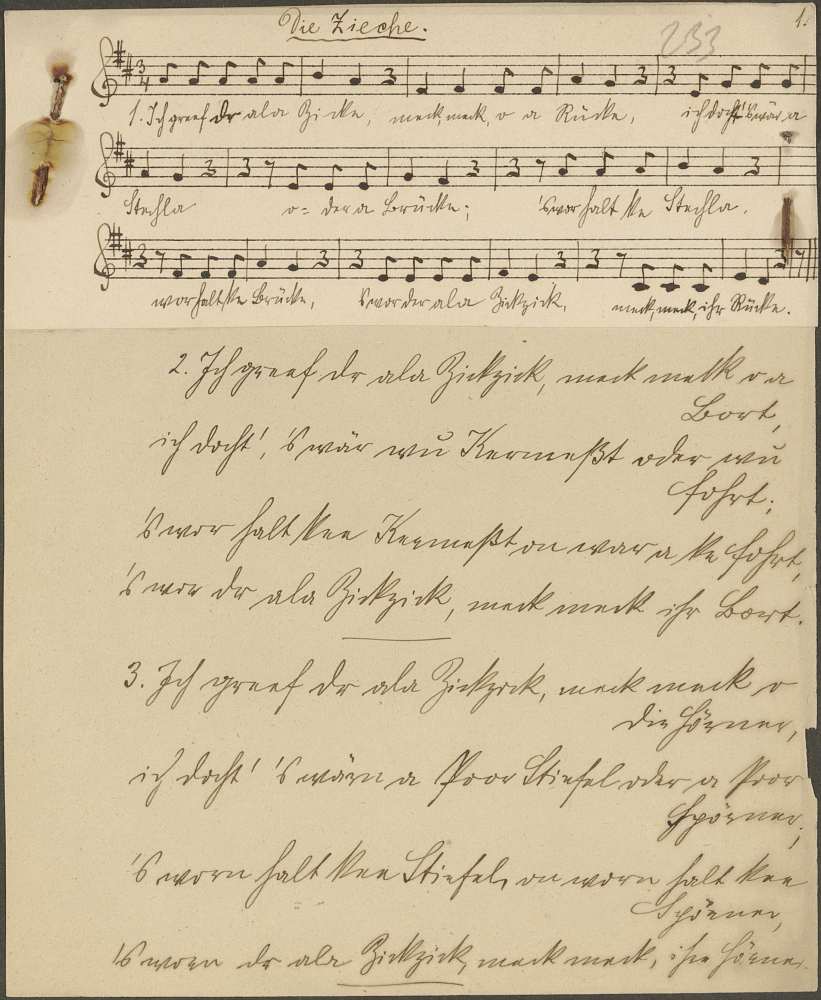 Die Zieche.
1.
233
1. Ich greef dr ala Zicke, meck, meck, o a Rücke, ich docht' 's wär a
Stechla o-der a Brücke; 's wor halt ke Stechla,
wor halt ke Brücke, 's wor der ala Zickzick, meck, meck, ihr Rücke.
2. Ich greef dr ala Zickzick, meck meck o a
Bort,
ich docht', 's wär wu Kermeßt oder wu
Fohrt;
's wor halt kee Kermeßt on war a ke Fohrt,
's wor dr ala Zickzick, meck meck ihr Boert.
3. Ich greef dr ala Zickzick, meck meck o
die Hörner,
ich docht' 's wärn a Poor Stiefel oder a Poor
Spörner;
's worn halt kee Stiefel, on worn halt kee
Spörner,
's worn dr ala Zickzick, meck meck, ihre Hörner.